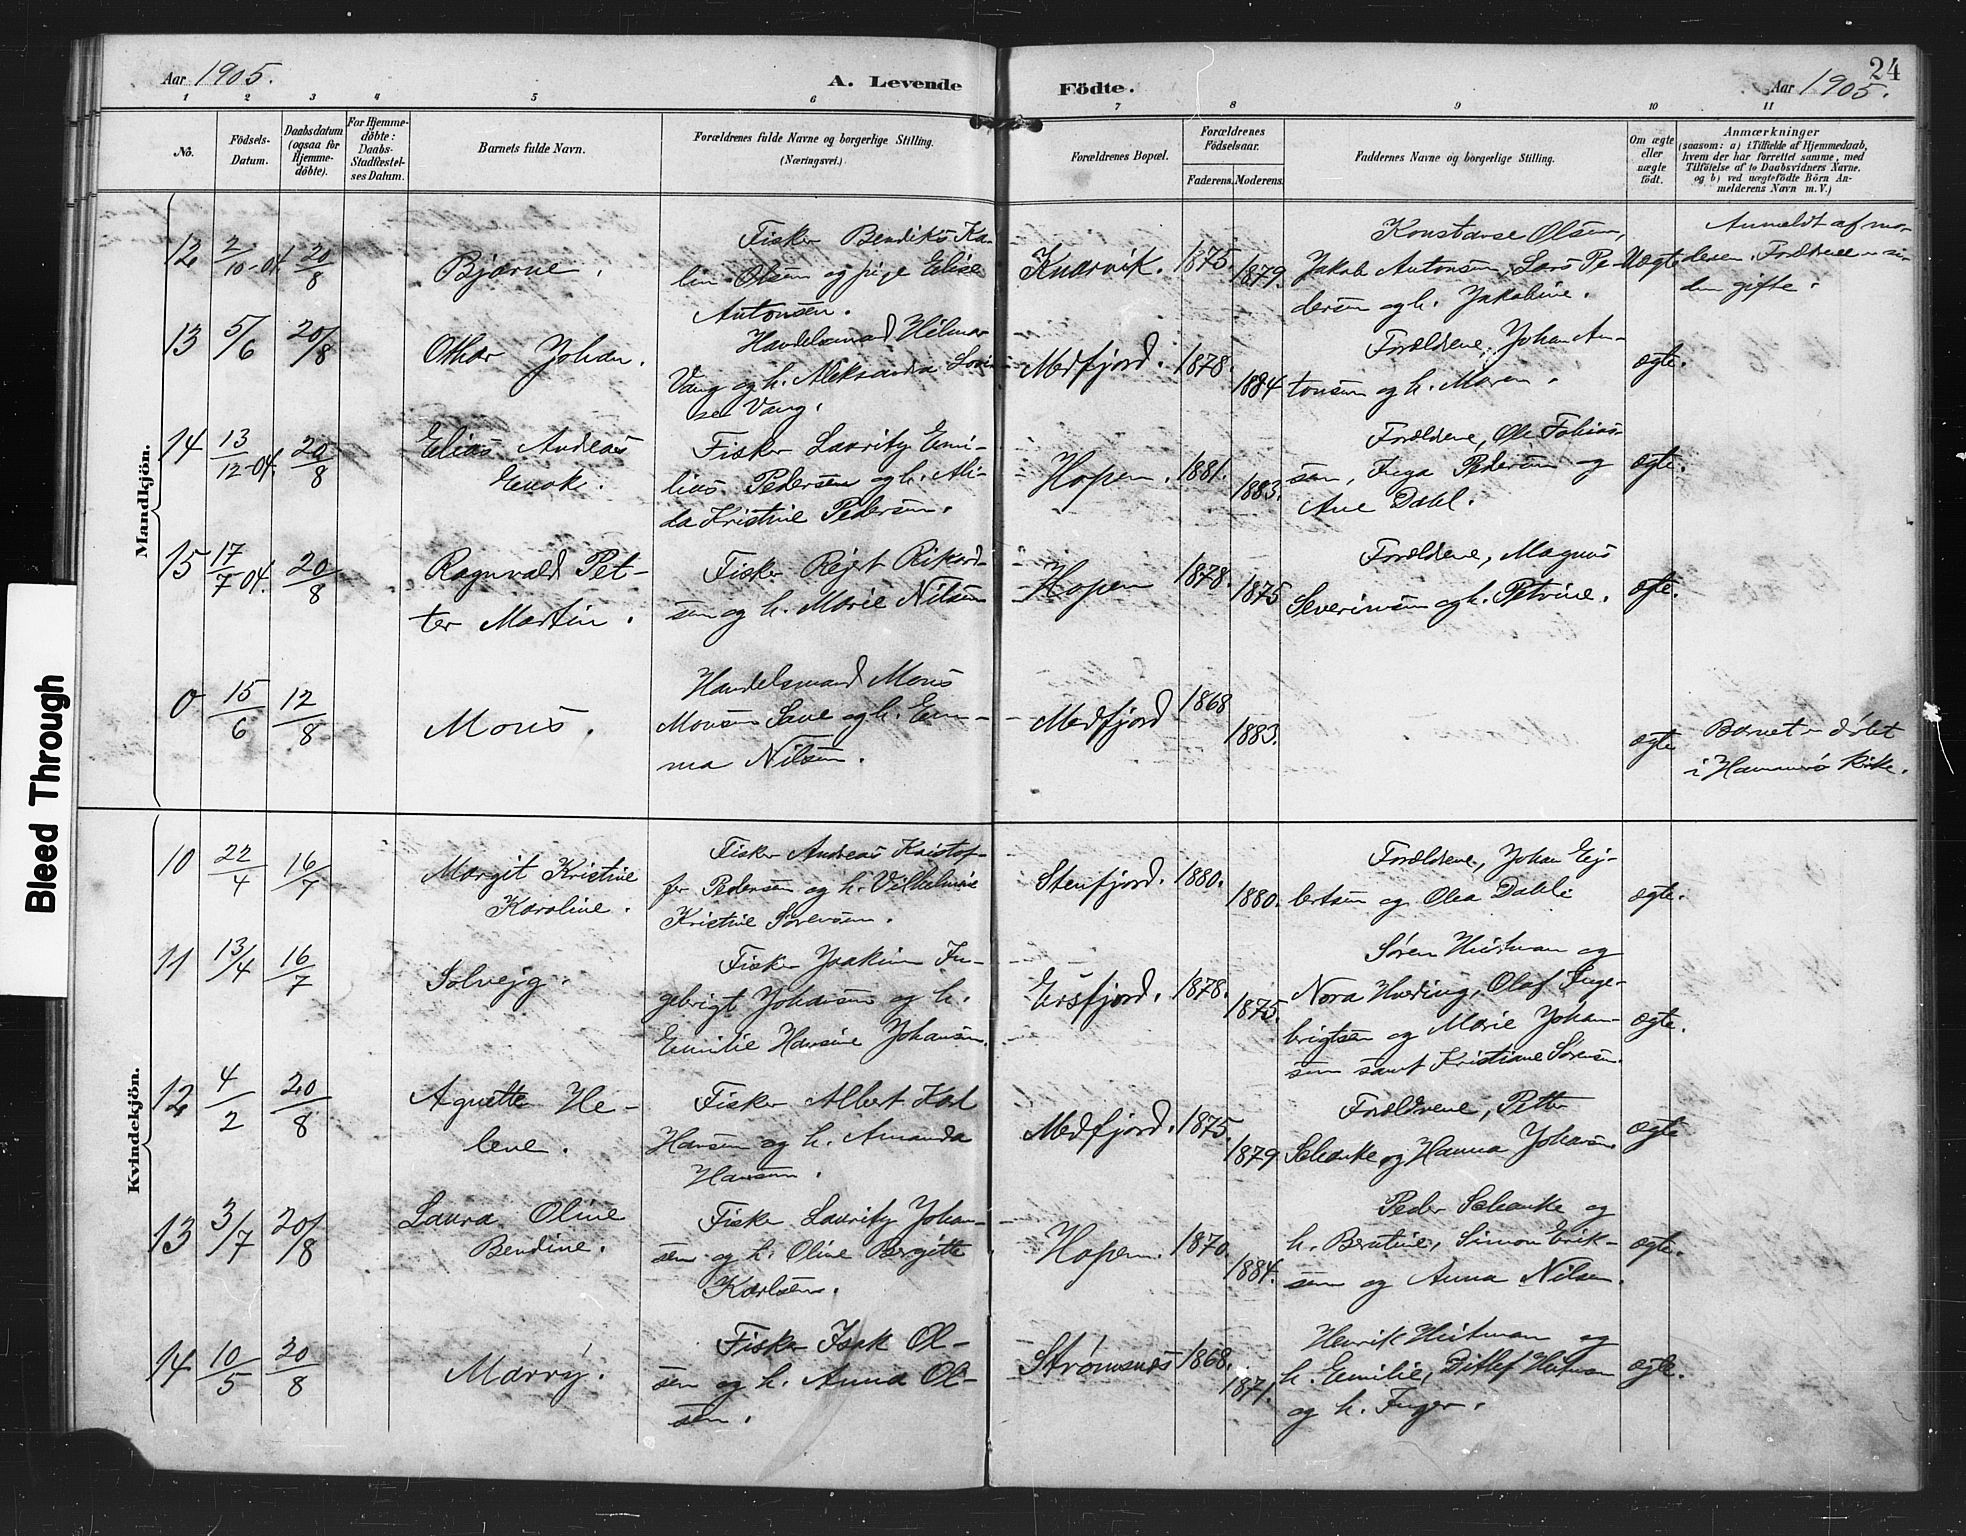 Aar 1905.
A. Levende Födte.
Aar 1905.
24
1 2 3 4 5 6 7 8 9 10 11
No.
Födsels-
Datum.
Daabsdatum
(ogsaa for
Hjemme-
döbte).
For Hjemme-
döbte:
Daabs-
Stadfæstel-
ses Datum.
Barnets fulde Navn.
Forældrenes fulde Navne og borgerlige Stilling.
(Næringsvei.)
Forældrenes Bopæl.
Forældrenes
Födselsaar.
Faderens. Moderens.
Faddernes Navne og borgerlige Stilling.
Om ægte
eller
uægte
födt.
Anmærkninger
(saasom: a) i Tilfælde af Hjemmedaab,
hvem der har forrettet samme, med
Tilföielse af to Daabsvidners Navne.
og b) ved uægtefödte Börn An-
melderens Navn m. V.)
Mandkjön.
12 2/10-04. 20/8
Bjarne.
Fisker Bendiks Ka-
lin Olsen og pige Elise
Antonsen.
Knarvik. 1875. 1879.
Konstanse Olsen,
Jakob Antonsen, Lars Pe-
dersen og h. Jakobine.
Uægte
Anmeldt af mo-
deren. Forældrene
den gifte.
13 5/6 20/8
Othar Johan.
Handelsmand Hilmar
Vang og h. Aleksandra Lovi-
se Vang.
Medfjord. 1878. 1884
Forældrene, Johan An-
tonsen og h. Maren.
ægte.
14 13/12-04. 20/8
Elias Andreas
Enok.
Fisker Lauritz Emi-
lius Pedersen og h. Ali-
da Kristine Pedersen.
Hopen. 1881. 1883.
Forældrene, Ole Tobias-
sen, Inga Pedersen og
Ane Dahl.
ægte.
15 17/7 04. 20/8
Ragnvald Pet-
ter Martin.
Fisker Rejet Rikard-
sen og h. Marie Nilsen
Hopen 1878. 1875
Forældrene, Magnus
Severinsen og h. Petrine.
ægte.
0 15/6 12/8
Mons.
Handelsmand Mons
Monsen Saue og h. Em-
ma Nilsen.
Medfjord 1868 1883.
ægte
Barnet døbt
i Hammerö Kirke.
Kvindekjön.
10 22/4 16/7
Margit Kristine
Karoline.
Fisker Andreas Kristof-
fer Pedersen og h. Vilhelmine
Kristine Sørensen.
Stenfjord. 1880. 1880.
Forældrene, Johan Ej-
bertsen og Olea Dahl
ægte.
11 13/4 16/7
Solvejg.
Fisker Joakim In-
gebrigt Johansen og h.
Emilie Hansine Johansen.
Ersfjord. 1878. 1875.
Søren Hutman og
Nora Hveding, Olaf Inge-
brigtsen og Marie Johan-
sen samt Kristiane Sørensen.
ægte.
12 4/2 20/8
Agnette He-
lene.
Fisker Albert Karl
Hansen og h. Amanda
Hansen.
Medfjord. 1875. 1879
Forældrene, Petter
Schanke og Hanna Johansen
ægte
13 3/7 20/8
Laura Oline
Bendine.
Fisker Lauritz Johan-
sen og h. Oline Bergitte
Karlsen.
Hopen. 1870. 1884.
Peder Schanke og
h. Berntine, Simon Erik-
sen og Anna Nilsen.
ægte.
14 10/5 20/8
Marry.
Fisker Isak Ol-
sen og h. Anna Ol-
sen.
Strømsnes 1868. 1871.
Henrik Hutman og
h. Emilie, Ditlef Hutman
og h. Inger.
ægte.
Bleed Through